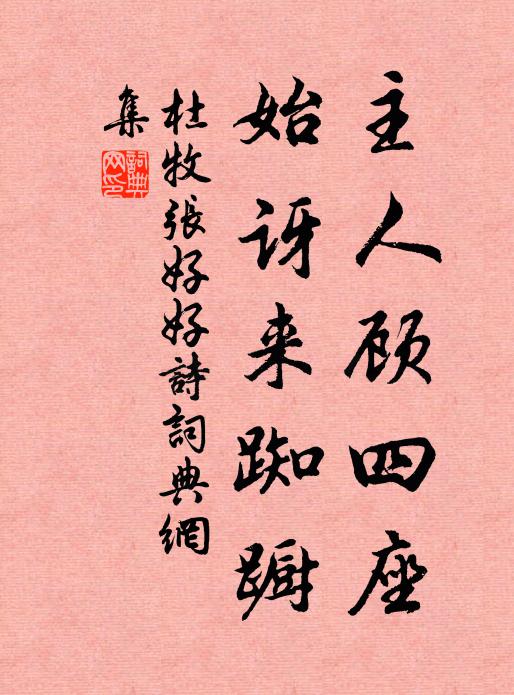 主人顾四座
始讶来踟蹰
杜牧张好好詩詞典網
集
詞典
网印